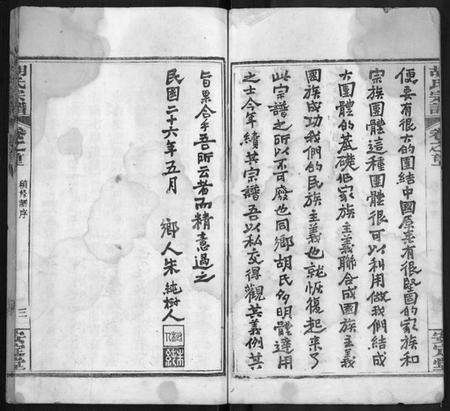 便要有很大的團結中國原來有很堅固的家族和
宗族團體這種團體很可以利用做我們結成
大團體的基礎但家族主義聯合成國族主義
國族成功我們的民族主義也就恢復起來了
此宗譜之所以不可廢也同鄉胡氏多明體達用
之士今年續其宗譜吾以私交得觀其義例其
旨果合乎吾所云者而精意過之
民國二十六年五月 鄉人朱純樹人
胡氏宗譜
卷之首
續修譜序
三
安定堂